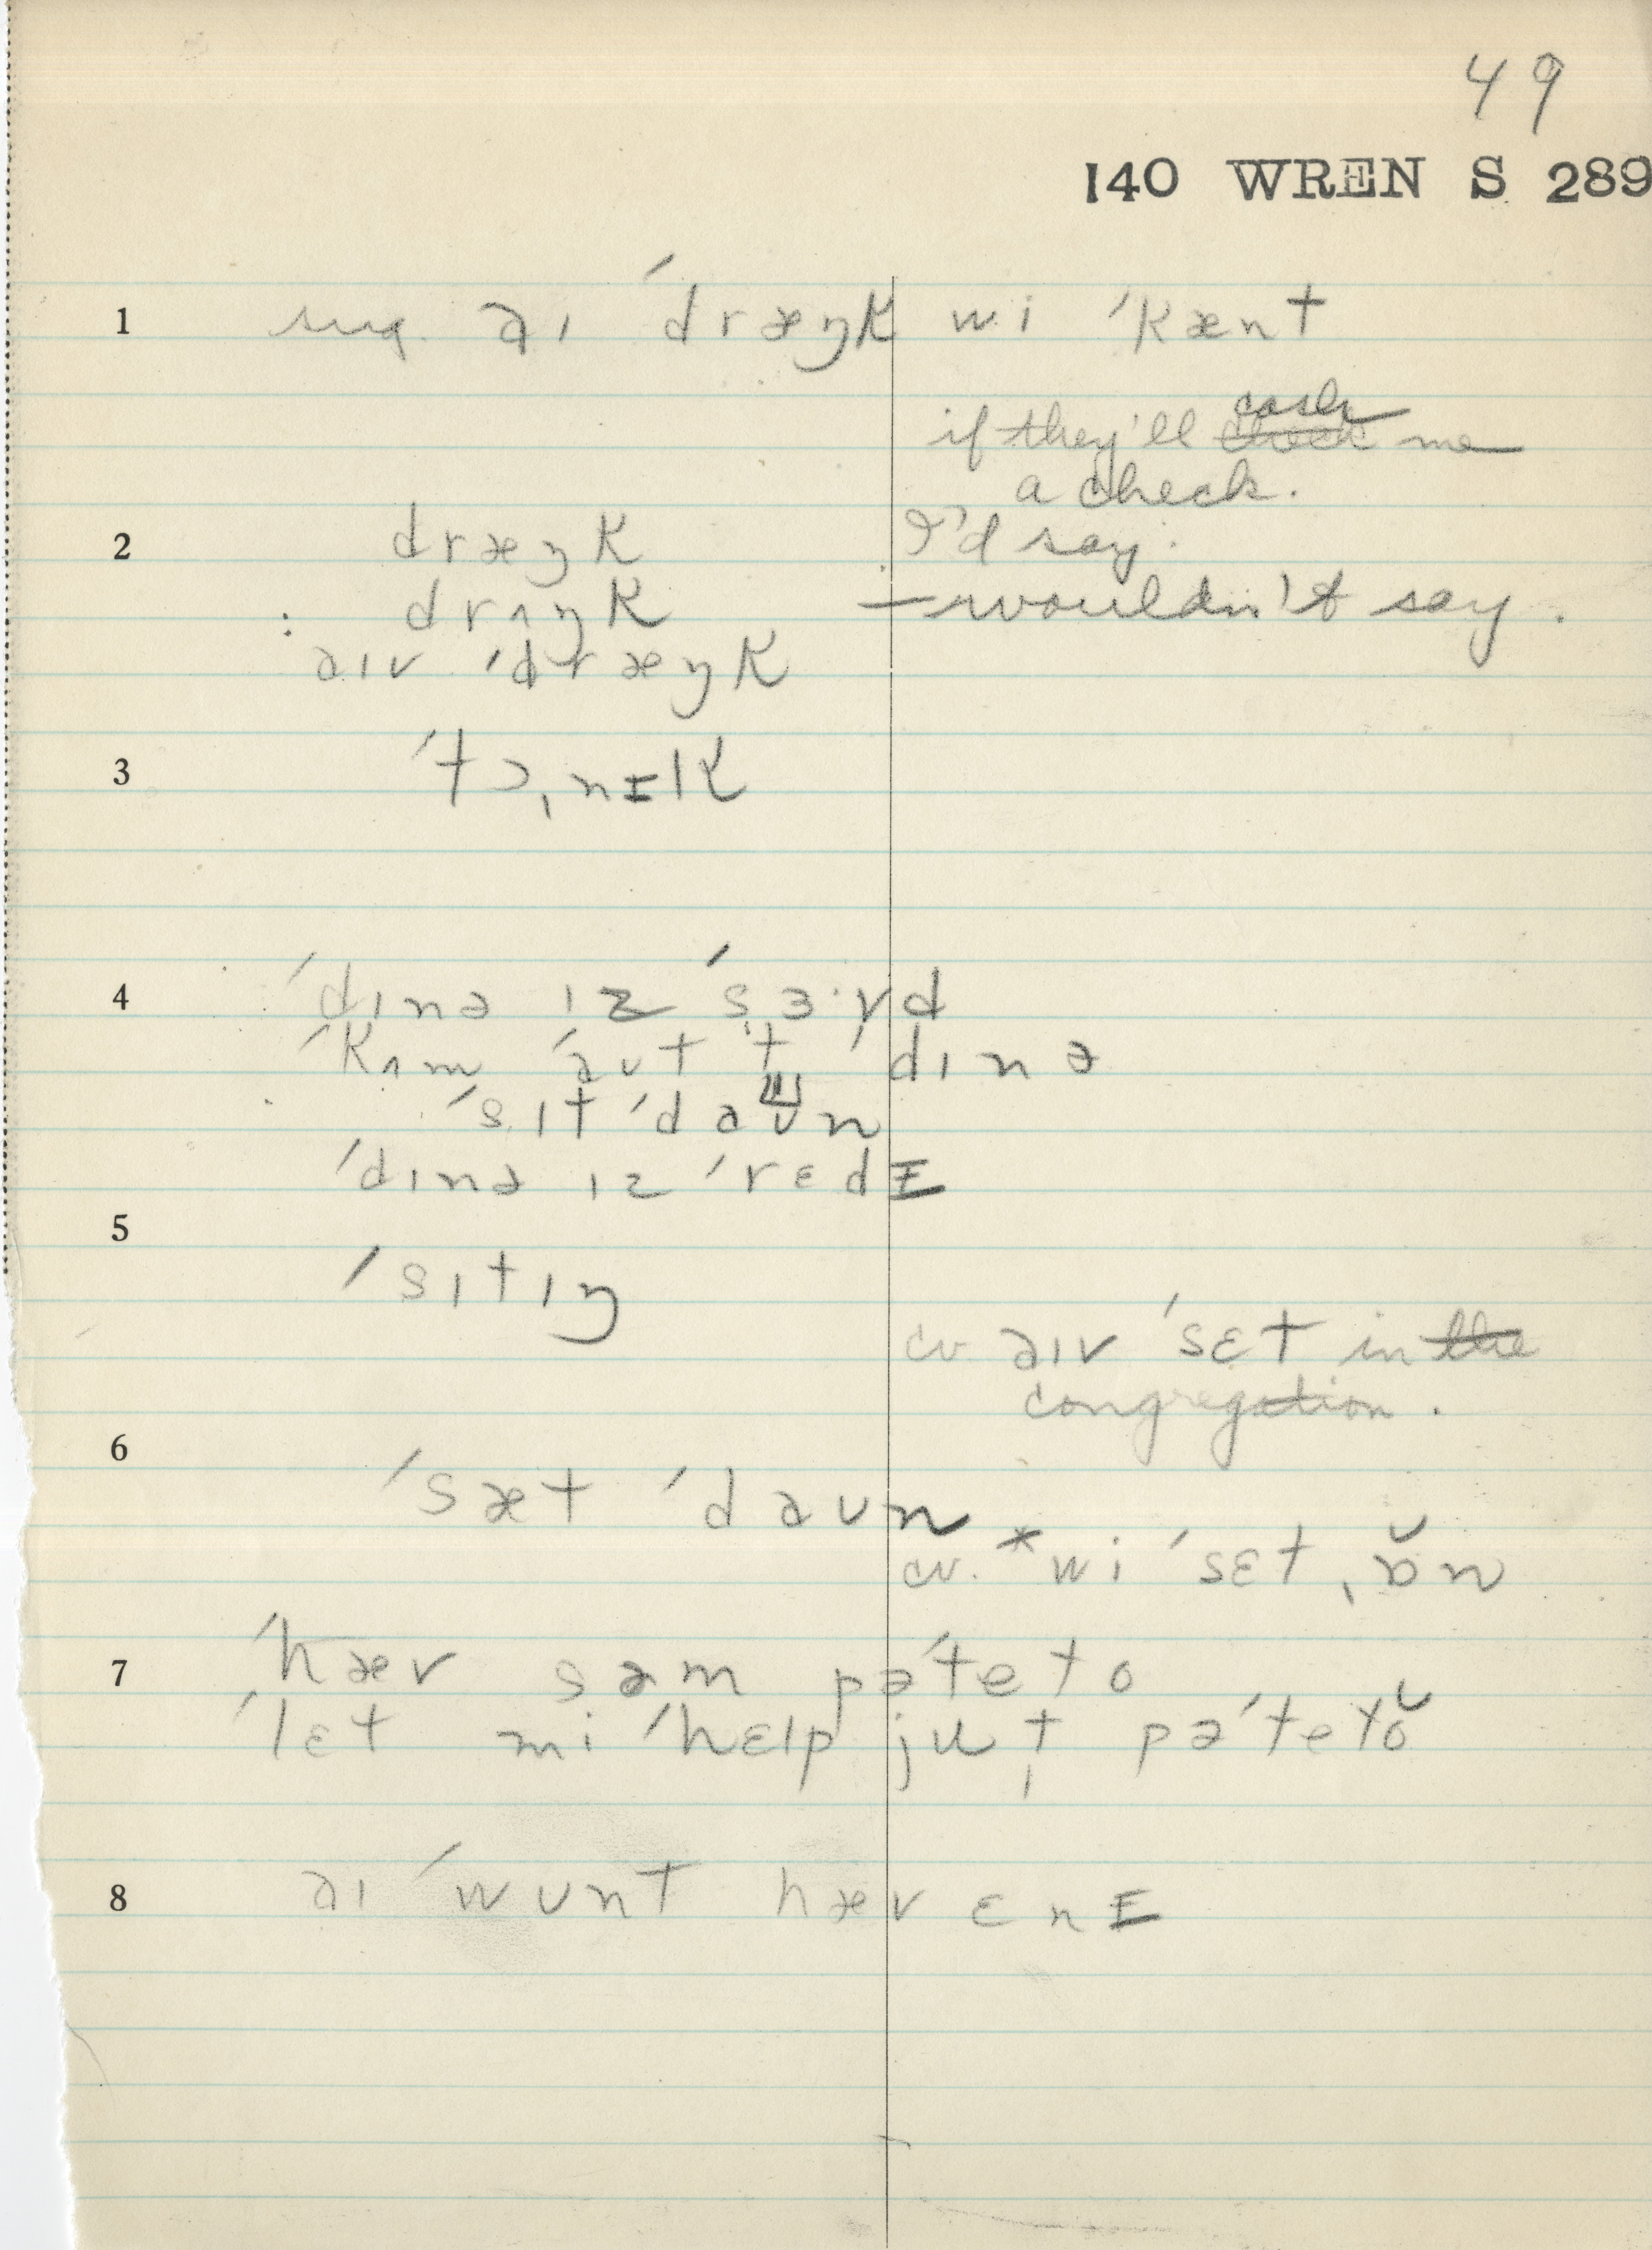 49
140 WREN S 289
1 sug. aɪ ˈdræŋk wi ˈkænt
if they'll cash me
a check.
2 dræŋk I'd say.
: drʌŋk — wouldn't say.
aɪv ˈdræŋk
3 ˈtɔˌnɪk
4 ˈdɪnə ɪz ˈsɜ·vd
ˈkʌm ˈaʊt t ˈdɪnə
ˈsɪt ˈdaʊn
ˈdɪnə ɪz ˈrɛdɪ
5
ˈsɪtɪŋ
cv. aɪv ˈsɛt in the
congregation.
6
ˈsæt ˈdaʊn
cv. *wi ˈsɛt ˌɒ̆n
7 ˈhæv səm pəˈteto
ˈlɛt mi ˈhɛlp ju t pəˈtetŏ
8 aɪ ˈwʊnt hæv ɛnɪ